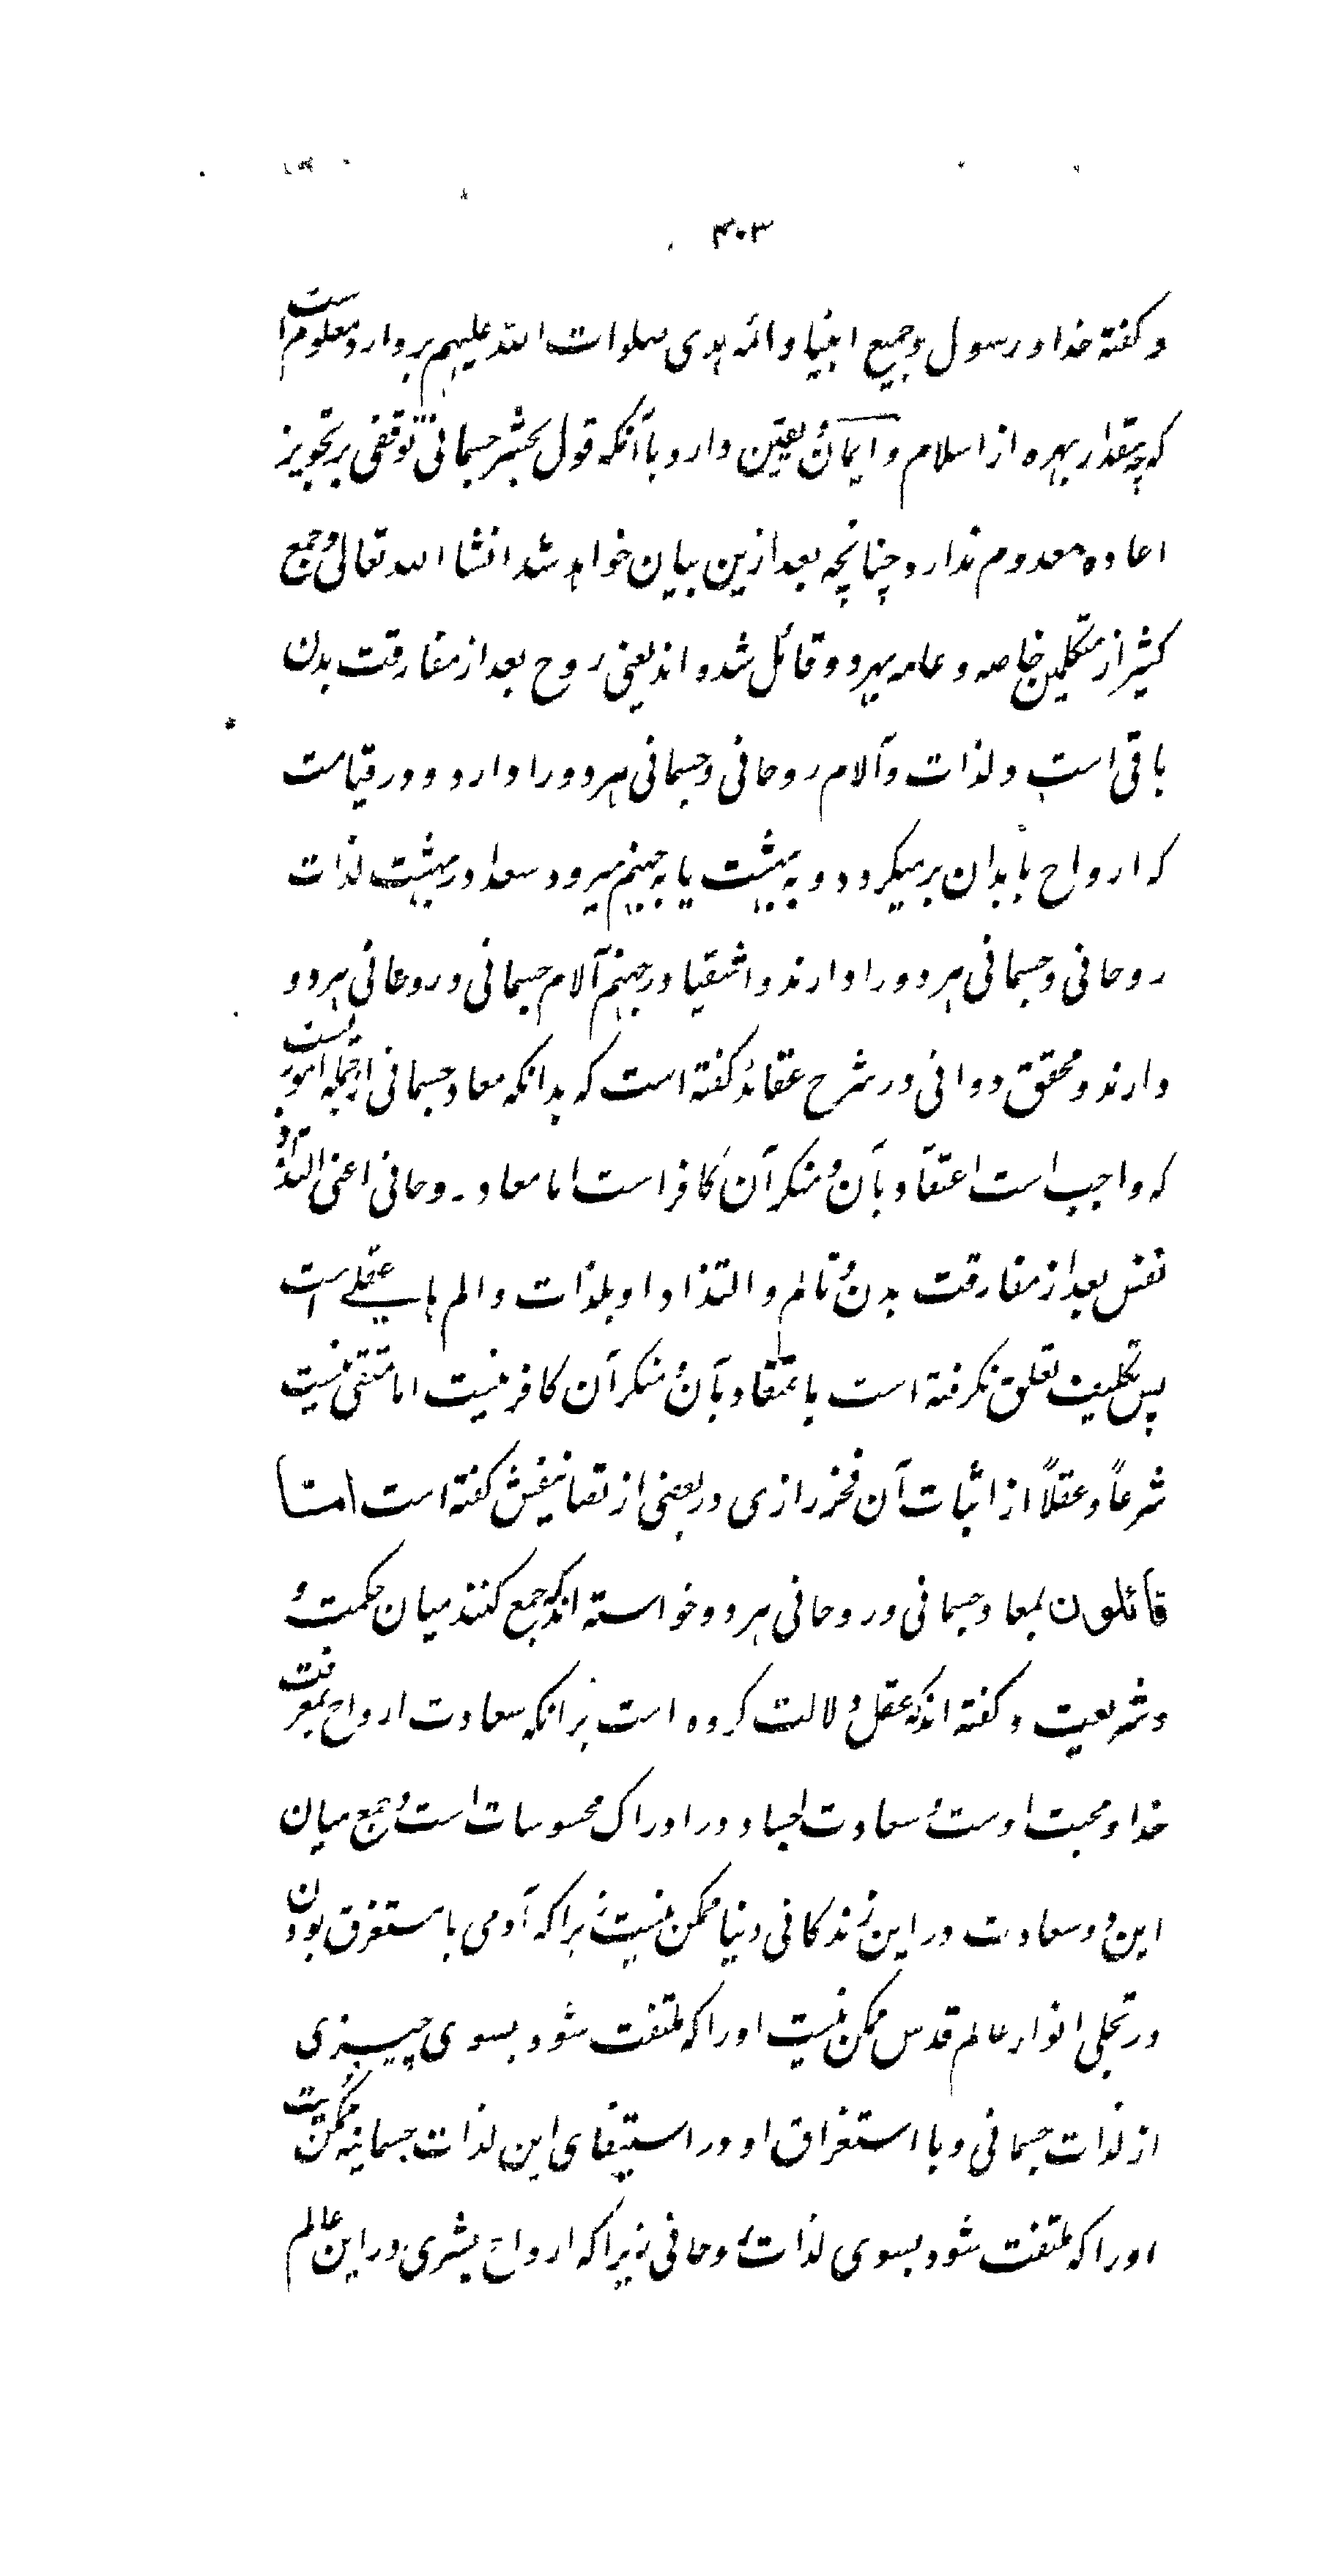 ۴۰۳
و گفته خدا و رسول و جمیع انبیا و ائمه هدی صلوات الله علیهم بر دارد و معلوم است
که چه مقدار بهره از اسلام و ایمان و یقین دارد با آنکه قول بحشر جسمانی توقفی بر تجویز
اعاده معدوم ندارد چنانچه بعد ازین بیان خواهد شد انشا الله تعالی و جمع
کثیر از متکلمین خاصه و عامه بهر دو قائل شده اند یعنی روح بعد از مفارقت بدن
باقی است و لذات و آلام روحانی و جسمانی هر دو را دارد و در قیامت
که ارواح بابدان برمیگردد و به بهشت یا به جهنم میرود سعدا در بهشت لذات
روحانی و جسمانی هر دو را دارند و اشقیا در جهنم آلام جسمانی و روحانی هر دو
دارند و محقق دوانی در شرح عقائد گفته است که بدانکه معاد جسمانی از جمله امور یست
که واجب است اعتقاد بآن و منکر آن کافر است اما معاد روحانی اعنی التذاذ
نفس بعد از مفارقت بدن و تالم و التذاذ او بلذات و الم های عقلی است
پس تکلیف تعلق نگرفته است باعتقاد بآن و منکر آن کافر نیست اما متقی نیست
شرعاً و عقلاً از اثبات آن فخر رازی در بعضی از تصانیفش گفته است امتا
قائلون بمعاد جسمانی و روحانی هر دو خواسته اند که جمع کنند میان حکمت و
و شریعت و گفته اند که عقل دلالت کرده است برانکه سعادت ارواح بمعرفت
خدا و محبت اوست و سعادت اجساد در ادراک محسوسات است و جمع میان
این دو سعادت در این زندگانی دنیا ممکن نیست زیرا که آدمی با مستغرق بودن
در تجلی انوار عالم قدس ممکن نیست او را که ملتفت شود بسوی چیزی
از لذات جسمانی و با استغراق او در استیفای این لذات جسمانیه ممکن نیست
او را که ملتفت شود بسوی لذات روحانی زیرا که ارواح بشری در این عالم